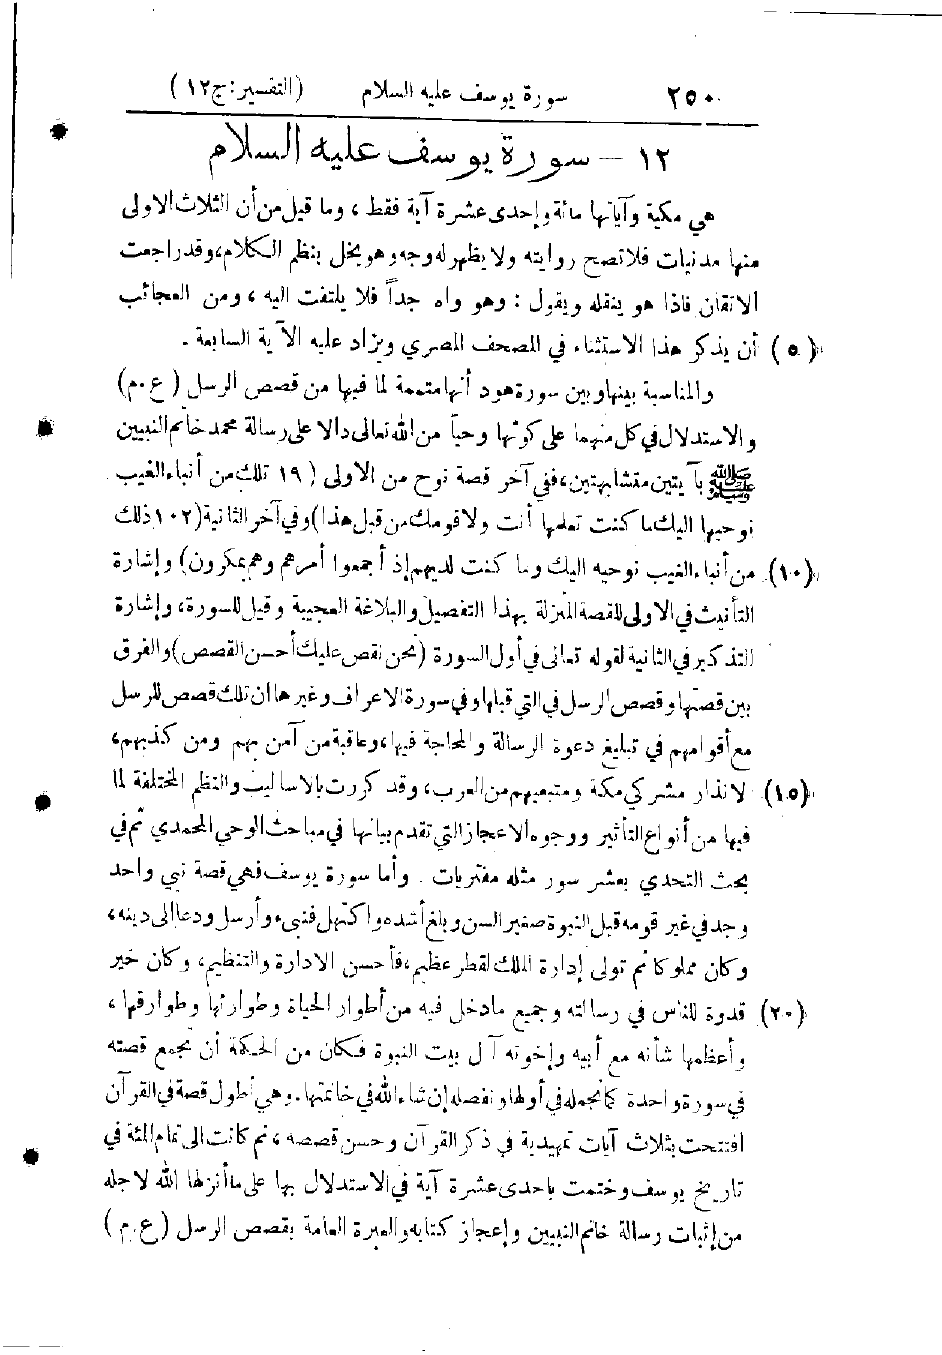 ٢٥٠ سورة يوسف عليه السلام (التفسير: ج ١٢)
١٢ – سورة يوسف عليه السلام
هي مكية وآياتها مائة وإحدى عشرة آية فقط، وما قيل من أن الثلاث الاولى
منها مدنيات فلا تصح روايته ولا يظهر له وجه وهو يخل بنظم الكلام، وقد راجعت
الاتقان فاذا هو ينقله ويقول: وهو واه جداً فلا يلتفت اليه، ومن العجائب
(٥) أن يذكر هذا الاستثناء في المصحف المصري ويزاد عليه الآية السابعة.
والمناسبة بينها وبين سورة هود أنها متممة لما فيها من قصص الرسل (ع.م)
والاستدلال في كل منهما على كونها وحياً من الله تعالى دالا على رسالة محمد خاتم النبيين
ﷺ بآيتين متشابهتين، ففي آخر قصة نوح من الاولى (١٩ تلك من أنباء الغيب
نوحيها اليك ما كنت تعلمها أنت ولا قومك من قبل هذا) وفي آخر الثانية (١٠٢ ذلك
(١٠) من أنباء الغيب نوحيه اليك وما كنت لديهم إذ أجمعوا أمرهم وهم يمكرون) وإشارة
التأنيث في الاولى للقصة المنزلة بهذا التفصيل والبلاغة العجيبة وقيل للسورة، وإشارة
التذكير في الثانية لقوله تعالى في أول السورة (نحن نقص عليك أحسن القصص) والفرق
بين قصتها وقصص الرسل في التي قبلها وفي سورة الاعراف وغيرها ان تلك قصص للرسل
مع أقوامهم في تبليغ دعوة الرسالة والمحاجة فيها، وعاقبة من آمن بهم ومن كذبهم،
(١٥) لانذار مشركي مكة ومتبعيهم من العرب، وقد كررت بالاساليب والنظم المختلفة لما
فيها من أنواع التأثير ووجوه الاعجاز التي تقدم بيانها في مباحث الوحي المحمدي ثم في
بحث التحدي بعشر سور مثله مفتريات. وأما سورة يوسف فهي قصة نبي واحد
وجد في غير قومه قبل النبوة صغير السن وبلغ أشده واكتهل فنبىء وأرسل ودعا الى دينه،
وكان مملوكا ثم تولى إدارة الملك لقطر عظيم، فأحسن الادارة والتنظيم، وكان خير
(٢٠) قدوة للناس في رسالته وجميع ما دخل فيه من أطوار الحياة وطوارئها وطوارقها،
وأعظمها شأنه مع أبيه وإخوته آل بيت النبوة فكان من الحكمة أن تجمع قصته
في سورة واحدة كما نجمله في أولها ونفصله إن شاء الله في خاتمتها. وهي أطول قصة في القرآن
افتتحت بثلاث آيات تمهيدية في ذكر القرآن وحسن قصصه، ثم كانت الى تمام المئة في
تاريخ يوسف وختمت باحدى عشرة آية في الاستدلال بها على ما أنزلها الله لاجله
من إثبات رسالة خاتم النبيين وإعجاز كتابه والعبرة العامة بقصص الرسل (ع.م)